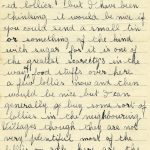 ed lollies! But I've been
thinking it would be nice if
you could send a small tin
or something of the kind
with sugar for it is one of
the greatest scarcities in the
way of food stuffs over here
a few lollies now and then
would be nice but I can
generally buy some sort of
lollies in the neighbouring
villages though they are not
very plentiful most of the